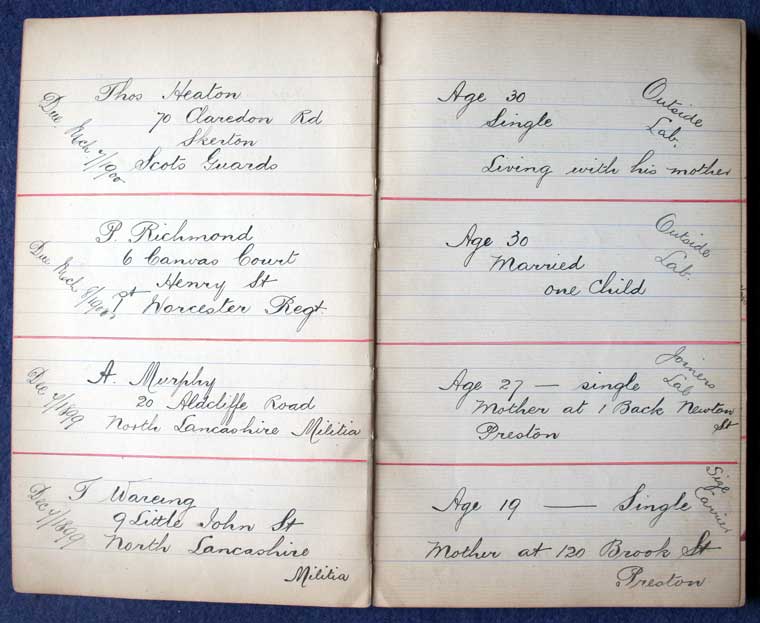 Thos Heaton
70 Claredon Rd
Skerton
Scots Guards
Age 30
Single
Living with his mother
Outside
Lab.
P. Richmond
6 Canvas Court
Henry St
Worcester Regt.
Age 30
Married
one Child
Outside
Lab.
A. Murphy
20 Aldcliffe Road
North Lancashire Militia
Dec 4/1899
Age 27 — single
Mother at 1 Back Newton
St
Preston
Joiners
Lab
T Wareing
9 Little John St
North Lancashire
Militia
Dec 4/1899
Age 19 — Single
Mother at 120 Brook St
Preston
Size
Carrier